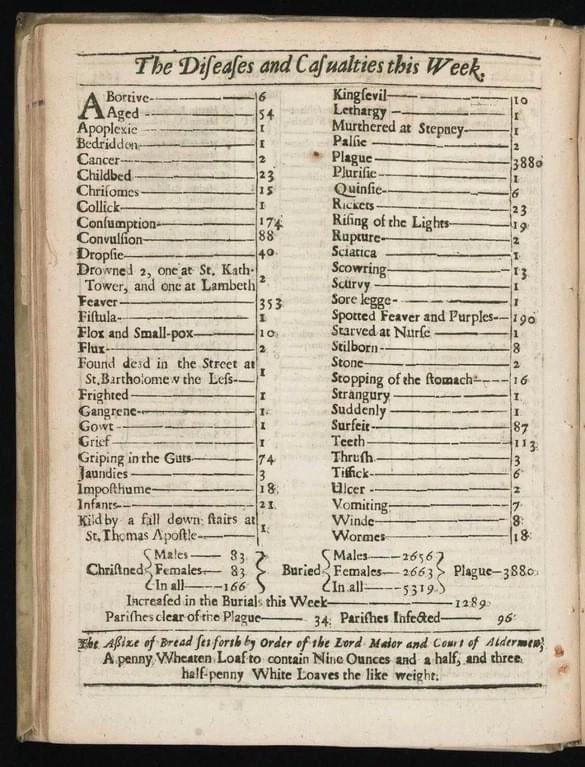 The Diſeaſes and Caſualties this Week.
ABortive 6
Aged 54
Apoplexie 1
Bedridden 1
Cancer 2
Childbed 23
Chriſomes 15
Collick 1
Conſumption 174
Convulſion 88
Dropſie 40
Drowned 2, one at St. Kath-
Tower, and one at Lambeth 2
Feaver 353
Fiſtula 1
Flox and Small-pox 10
Flux 2
Found dead in the Street at
St. Bartholomew the Leſs 1
Frighted 1
Gangrene 1
Gowt 1
Grief 1
Griping in the Guts 74
Jaundies 3
Impoſthume 18
Infants 21
Kild by a fall down ſtairs at
St. Thomas Apoſtle 1
Kingſevil 10
Lethargy 1
Murthered at Stepney 1
Palſie 2
Plague 3880
Pluriſie 1
Quinſie 6
Rickets 23
Riſing of the Lights 19
Rupture 2
Sciatica 1
Scowring 13
Scurvy 1
Sore legge 1
Spotted Feaver and Purples 190
Starved at Nurſe 1
Stilborn 8
Stone 2
Stopping of the ſtomach 16
Strangury 1
Suddenly 1
Surfeit 87
Teeth 113
Thruſh 3
Tiſſick 6
Ulcer 2
Vomiting 7
Winde 8
Wormes 18
Chriſtned
Males 83
Females 83
In all 166
Buried
Males 2656
Females 2663
In all 5319
Plague—3880
Increaſed in the Burials this Week 1289
Pariſhes clear of the Plague 34 Pariſhes Infected 96
The Aſſize of Bread ſet forth by Order of the Lord Maior and Court of Aldermen,
A penny Wheaten Loaf to contain Nine Ounces and a half, and three
half-penny White Loaves the like weight.